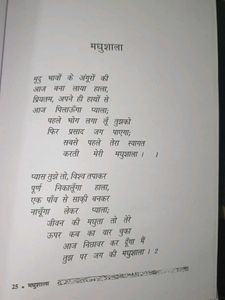 मधुशाला
मृदु भावों के अंगूरों की
आज बना लाया हाला,
प्रियतम, अपने ही हाथों से
आज पिलाऊँगा प्याला;
पहले भोग लगा लूँ तुझको
फिर प्रसाद जग पाएगा;
सबसे पहले तेरा स्वागत
करती मेरी मधुशाला । १
प्यास तुझे तो, विश्व तपाकर
पूर्ण निकालूँगा हाला,
एक पाँव से साक़ी बनकर
नाचूँगा लेकर प्याला;
जीवन की मधुता तो तेरे
ऊपर कब का वार चुका
आज निछावर कर दूँगा मैं
तुझ पर जग की मधुशाला । 2
25 • मधुशाला